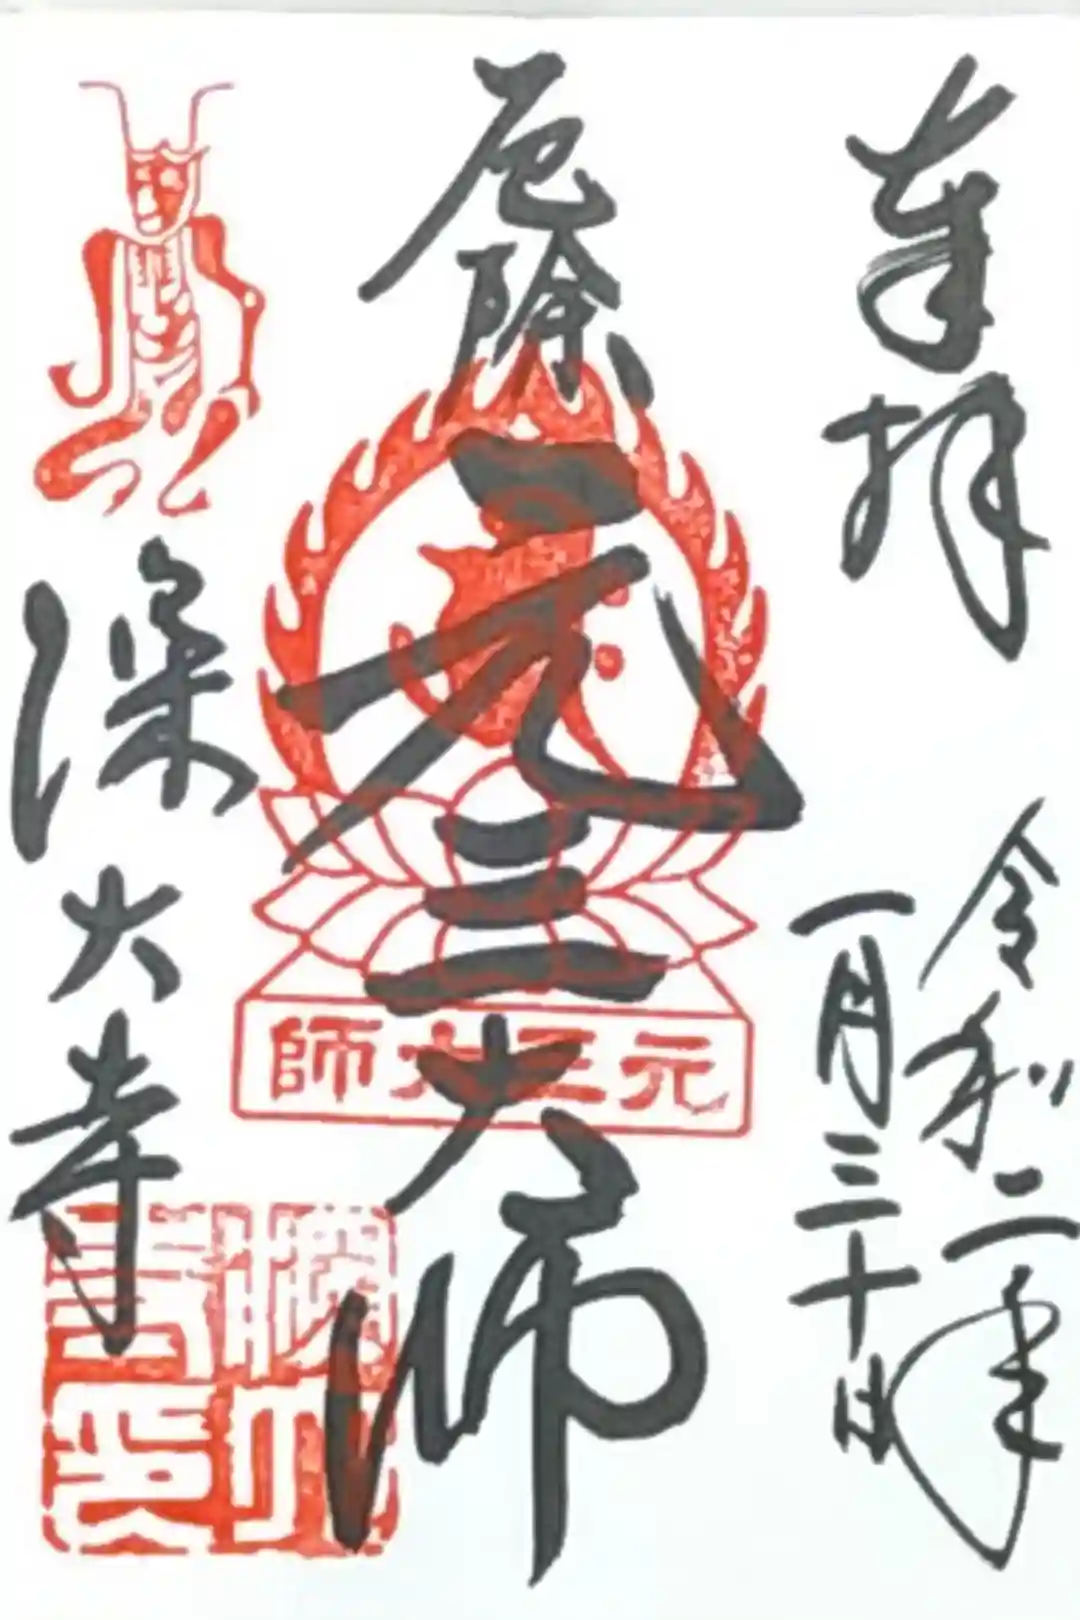 奉拝
令和二年
一月三十日
厄除
元三大師
元三大師
深大寺